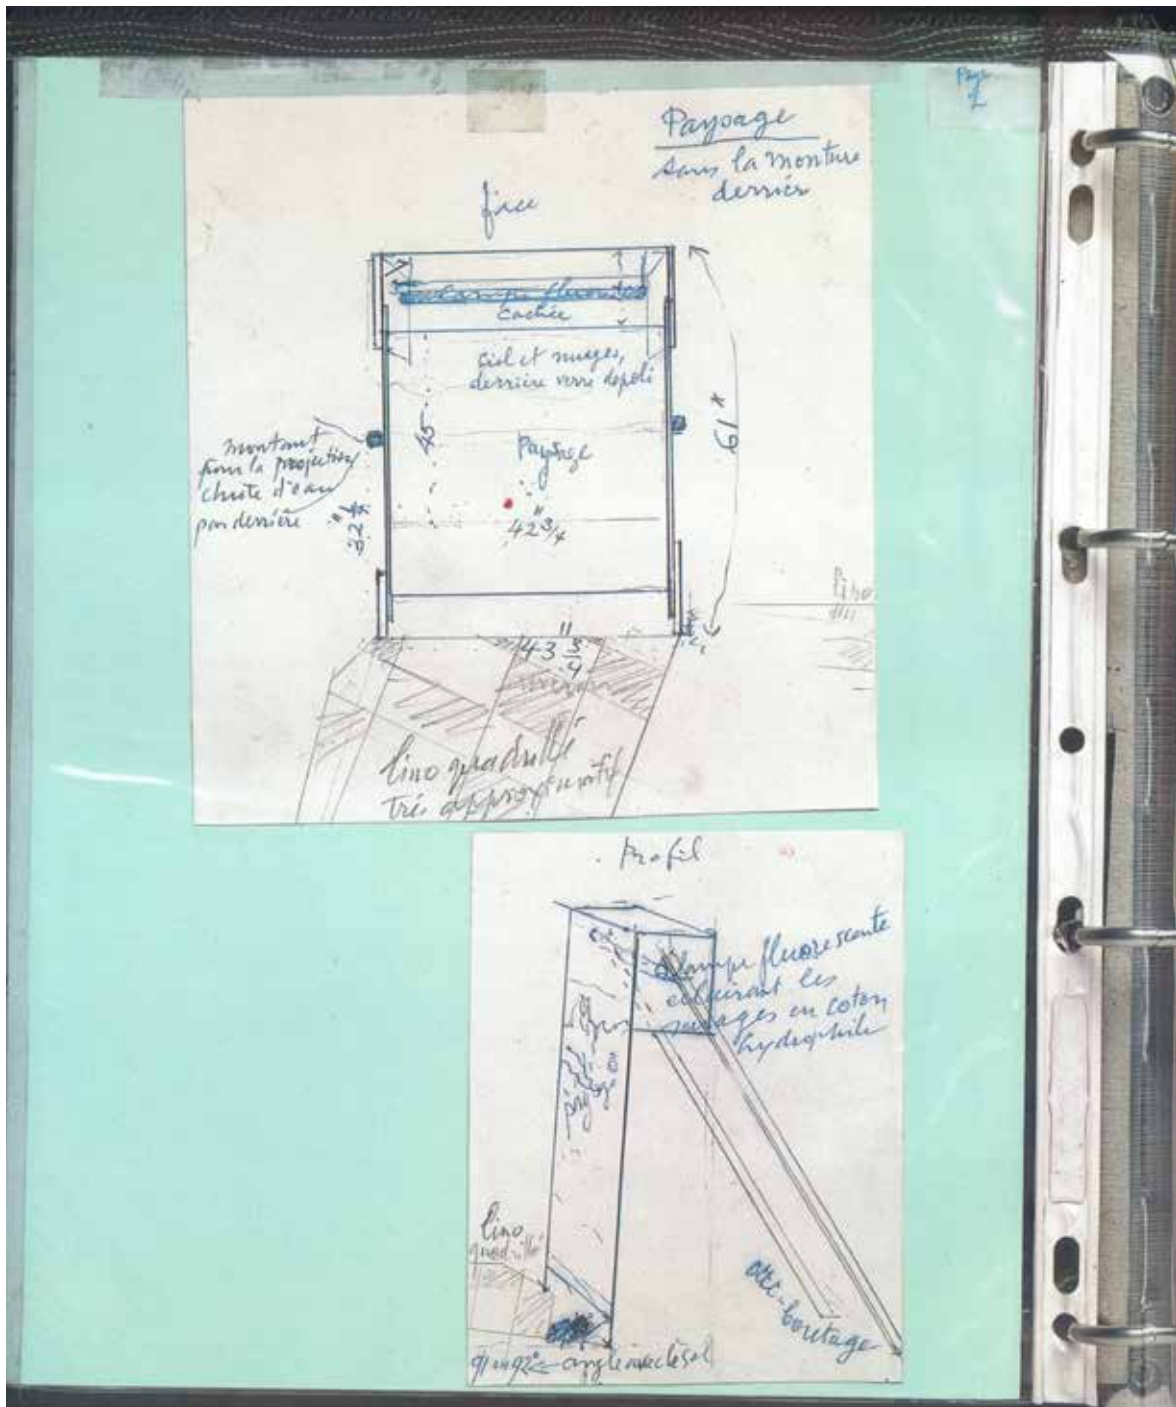 Page
2
Paysage
sans la monture
derrière
face
Lampe fluo
cachée
ciel et nuages,
derrière verre dépoli
45
61"
Paysage
montant
pour la projection
chute d'eau
par derrière
42" 3/4
lino
43" 3/4
lino quadrillé
très approximatif
Profil
Lampe fluorescente
éclairant les
nuages en coton
hydrophile
lino
quadrillé
arc-boutage
91 ou 92° angle avec le sol